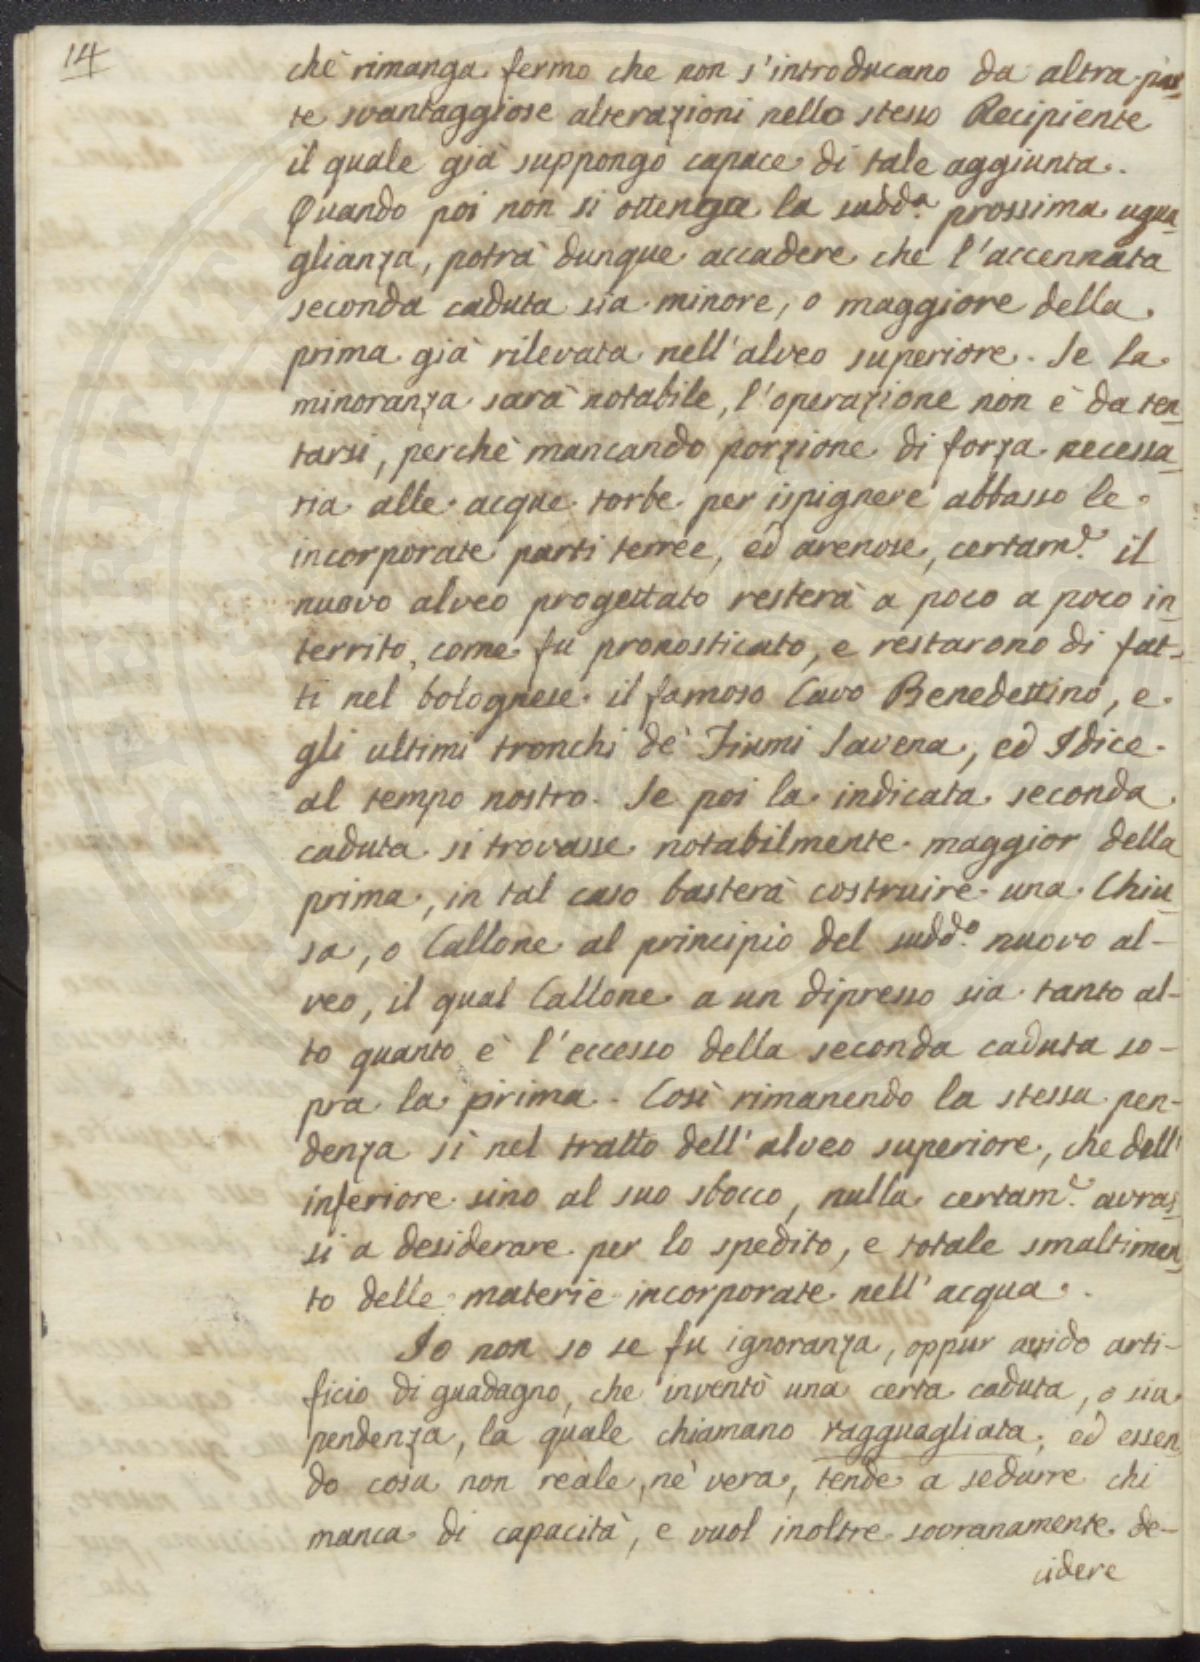 14
chè rimanga fermo che non s'introducano da altra par-
te svantaggiose alterazioni nello stesso Recipiente
il quale già suppongo capace di tale aggiunta.
Quando poi non si ottenga la sudd.a prossima ugua-
glianza, potrà dunque accadere che l'accennata
seconda caduta sia minore, o maggiore della
prima già rilevata nell'alveo superiore. Se la
minoranza sarà notabile, l'operazione non è da ten-
tarsi, perchè mancando porzione di forza necessa-
ria alle acque torbe per ispignere abbasso le
incorporate parti terree, ed arenose, certam.e il
nuovo alveo progettato resterà a poco a poco in-
territo, come fu pronosticato, e restarono di fat-
ti nel bolognese il famoso Cavo Benedettino, e
gli ultimi tronchi de' Fiumi Savena, ed Idice
al tempo nostro. Se poi la indicata seconda
caduta si trovasse notabilmente maggior della
prima, in tal caso basterà costruire una Chiu-
sa, o Callone al principio del sudd.o nuovo al-
veo, il qual Callone a un dipresso sia tanto al-
to quanto è l'eccesso della seconda caduta so-
pra la prima. Così rimanendo la stessa pen-
denza sì nel tratto dell'alveo superiore, che dell'
inferiore sino al suo sbocco, nulla certam.e avras-
si a desiderare per lo spedito, e totale smaltimen-
to delle materie incorporate nell'acqua.
Io non so se fu ignoranza, oppur avido arti-
ficio di guadagno, che inventò una certa caduta, o sia
pendenza, la quale chiamano ragguagliata, ed essen-
do cosa non reale, nè vera, tende a sedurre chi
manca di capacità, e vuol inoltre sovranamente de-
cidere